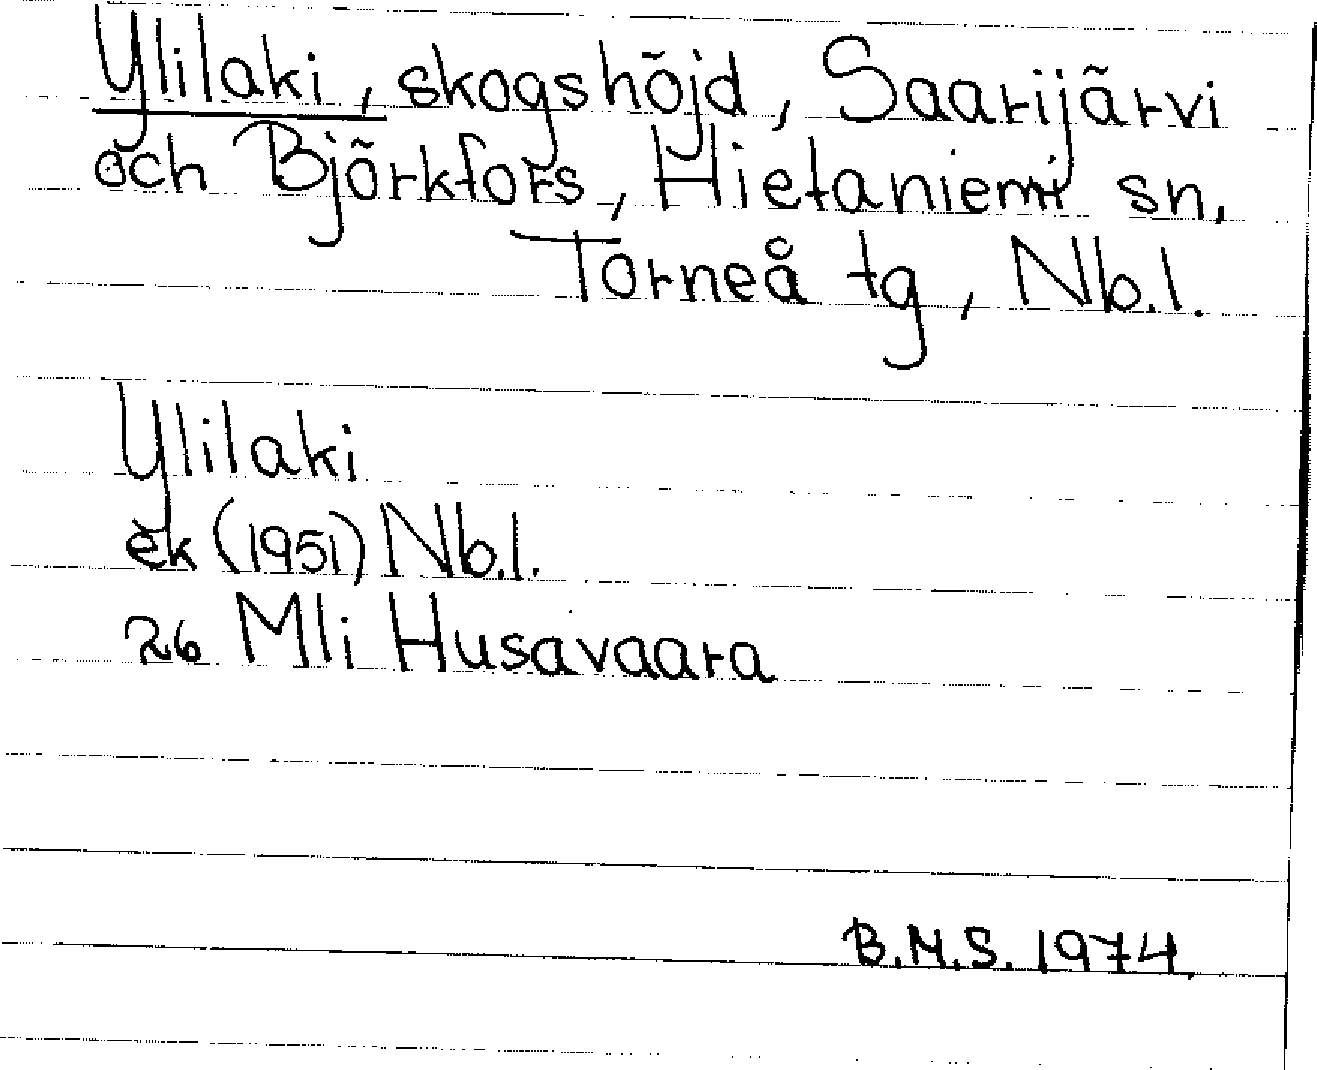 Ylilaki, skogshöjd, Saarijärvi
och Björkfors, Hietaniemi sn,
Torneå tg, Nb.l.
Ylilaki
ek (1951) Nb.l.
26 Mli Husavaara
B.M.S. 1974